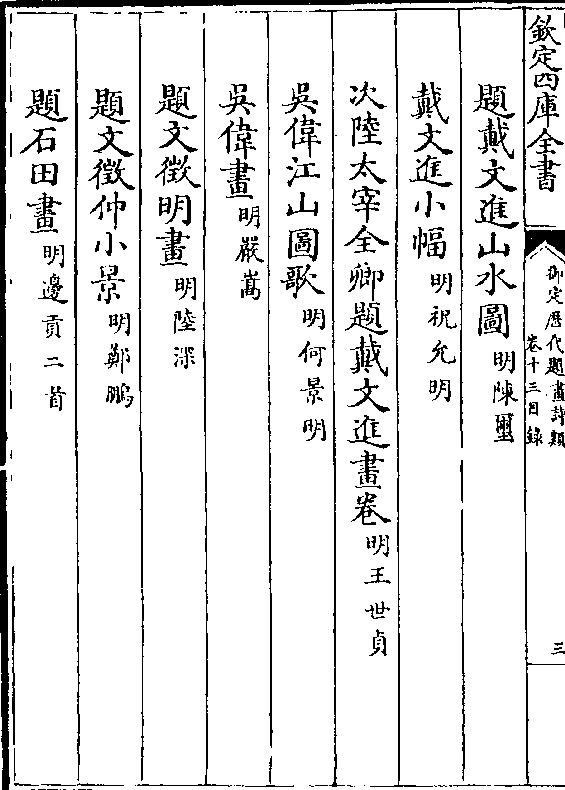 欽定四庫全書
御定歴代題畫詩類
卷十三目錄
三
題戴文進山水圖明陳璽
戴文進小幅明祝允明
次陸太宰全卿題戴文進畫卷明王世貞
吳偉江山圖歌明何景明
吳偉畫明嚴嵩
題文徵明畫明陸深
題文徵仲小景明鄭鵬
題石田畫明邊貢二首